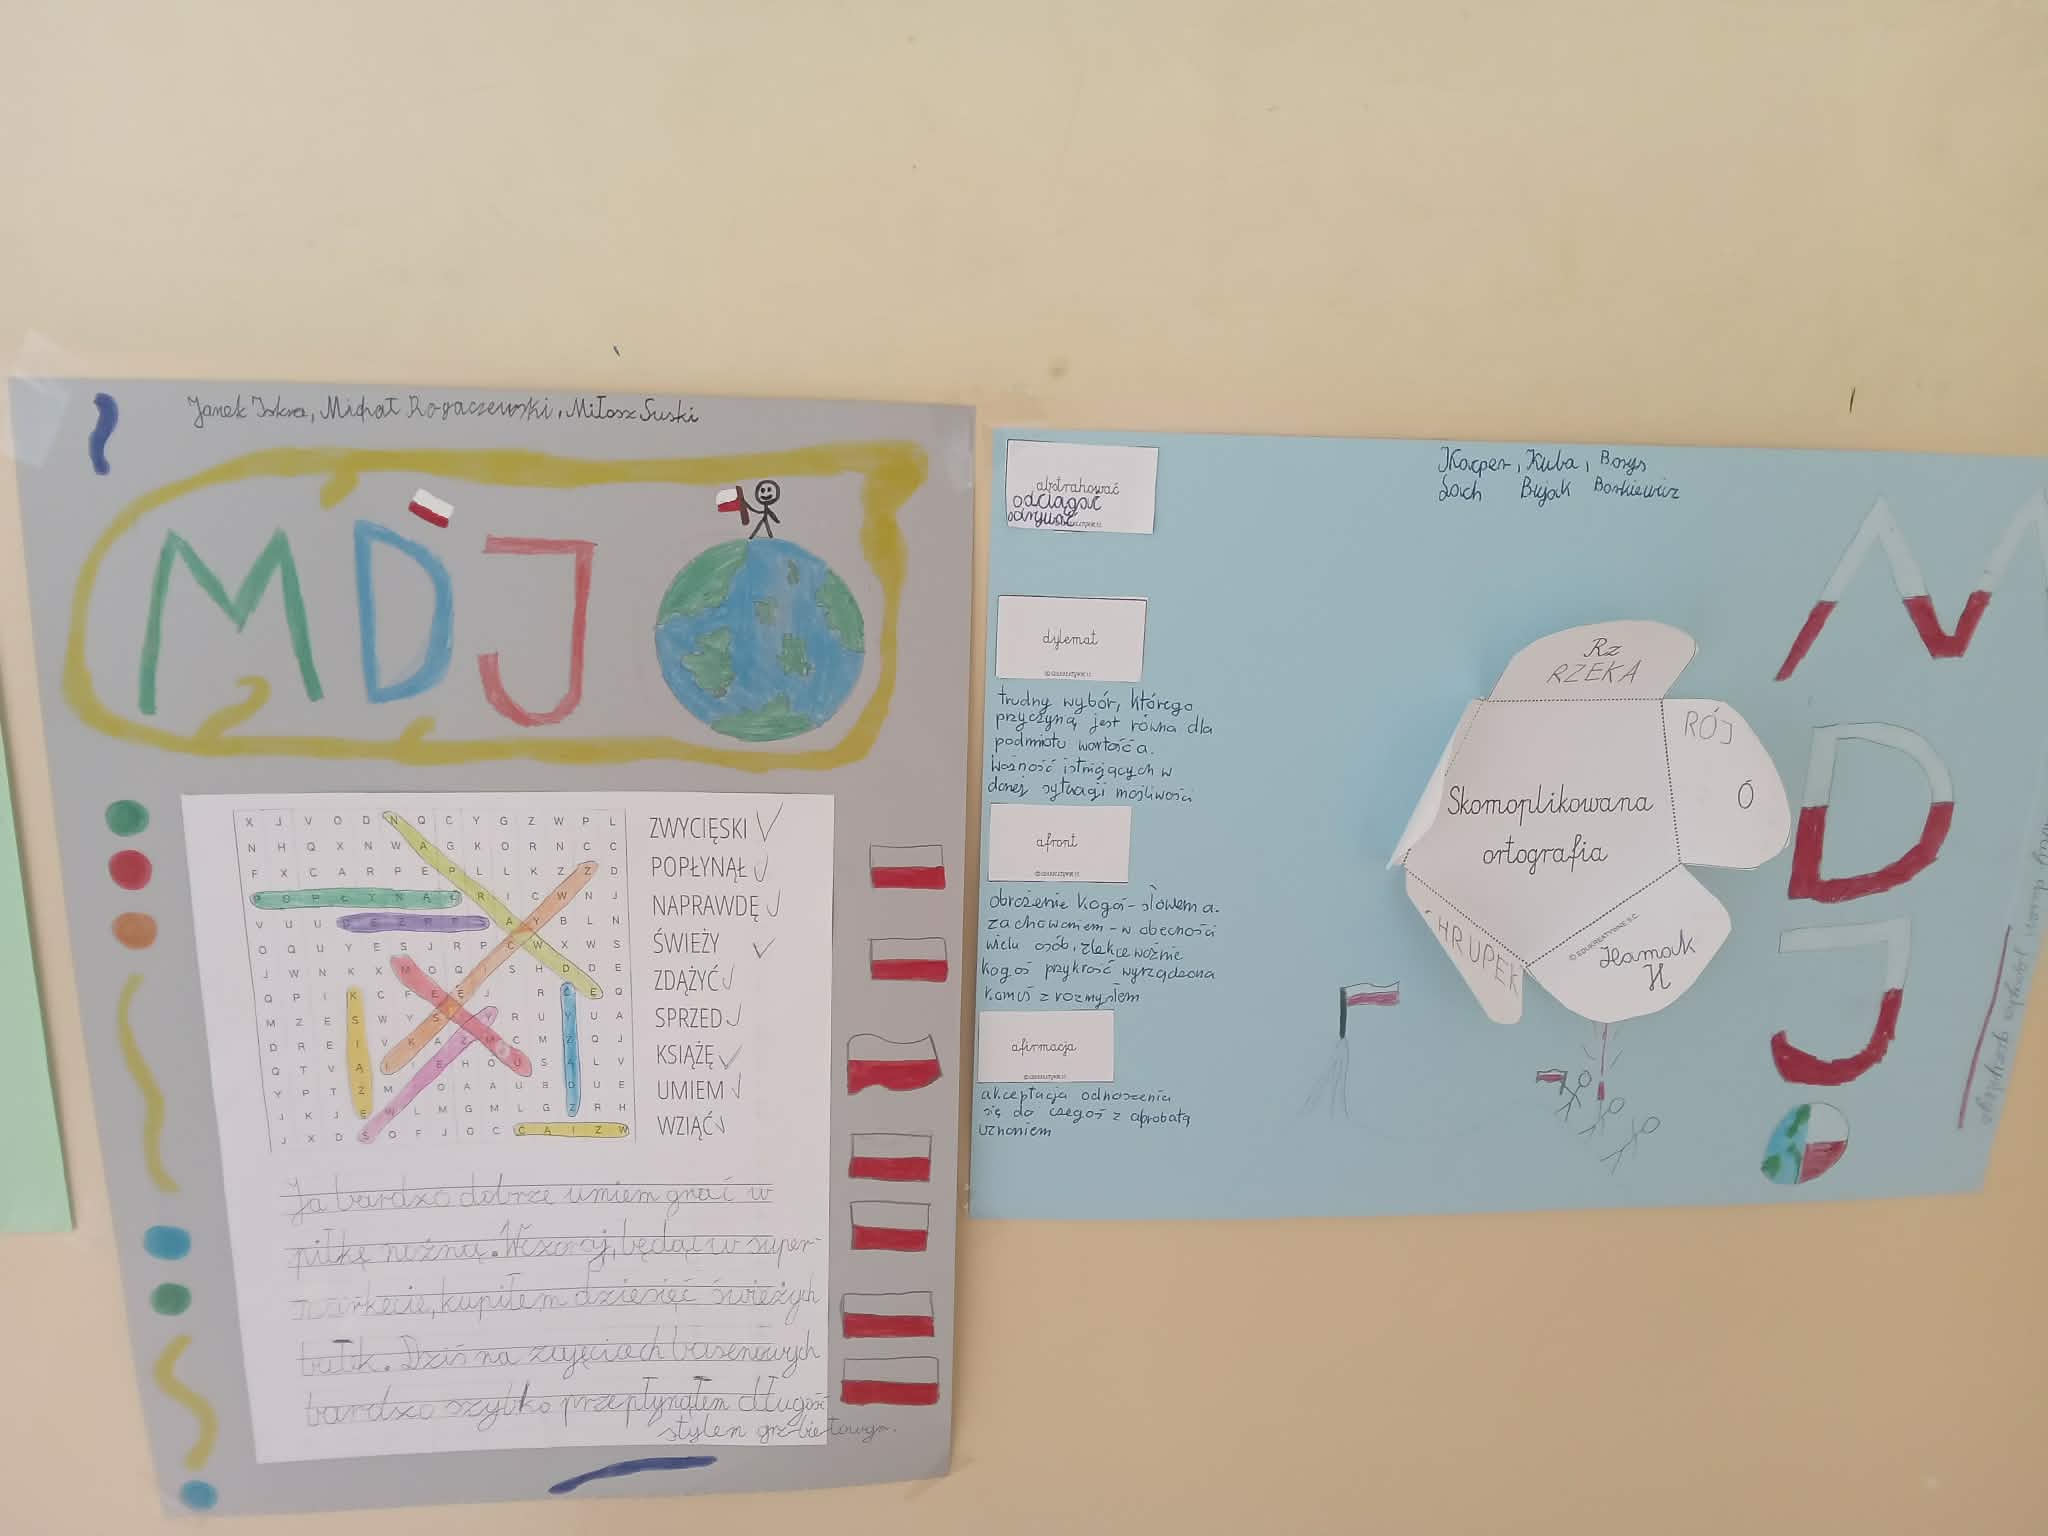 Janek Iskra, Michał Rogaczewski, Miłosz Suski
MDJ
X J V O D N Q C Y G Z W P L
N H Q X N W A G K O R N C C
F X C A R P E P L L K Z Z D
P O P Ł Y N Ą Ł R I C W N J
V U U D E Z R P S A Y B L N
O Q U Y E S J R P C W X W S
J W N K X M O Q I S H D D E
Q P I K C F E Ę J R Ć Ę Q
M Z E S W Y S Y R U Y U A
D R E I V K A Z M C M Ż Q J
Q T V Ą I I E H O U S Ą L V
Y P T Ż M I O A A U B D U E
J K J Ę W L M G M L G Z R H
J X D Ś O F J O C Ć Ą I Z W
ZWYCIĘSKI
POPŁYNĄŁ
NAPRAWDĘ
ŚWIEŻY
ZDĄŻYĆ
SPRZED
KSIĄŻĘ
UMIEM
WZIĄĆ
Ja bardzo dobrze umiem grać w
piłkę nożną. Wczoraj, będąc w super-
markecie, kupiłem dziesięć świeżych
bułk. Dziś na zajęciach basenowych
bardzo szybko przepłynąłem długość
stylem grzbietowym.
Kacper, Kuba, Borys
Łach Bujak Bartkiewicz
abstrahować
odciągać
odrywać
dylemat
trudny wybór, którego
przyczyną jest równa dla
podmiotu wartość a.
Ważność istniejących w
danej sytuacji możliwości
afront
obrażenie kogoś - słowem a.
zachowaniem - w obecności
wielu osób, zlekceważenie
kogoś przykrość wyrządzona
komuś z rozmysłem
afirmacja
akceptacja odnoszenia
się do czegoś z aprobatą
uznaniem
Rz
RZEKA
RÓJ
Ó
Skomoplikowana
ortografia
HRUPEK
© EDUKREATYWNIE SC
Hamak
H
MDJ